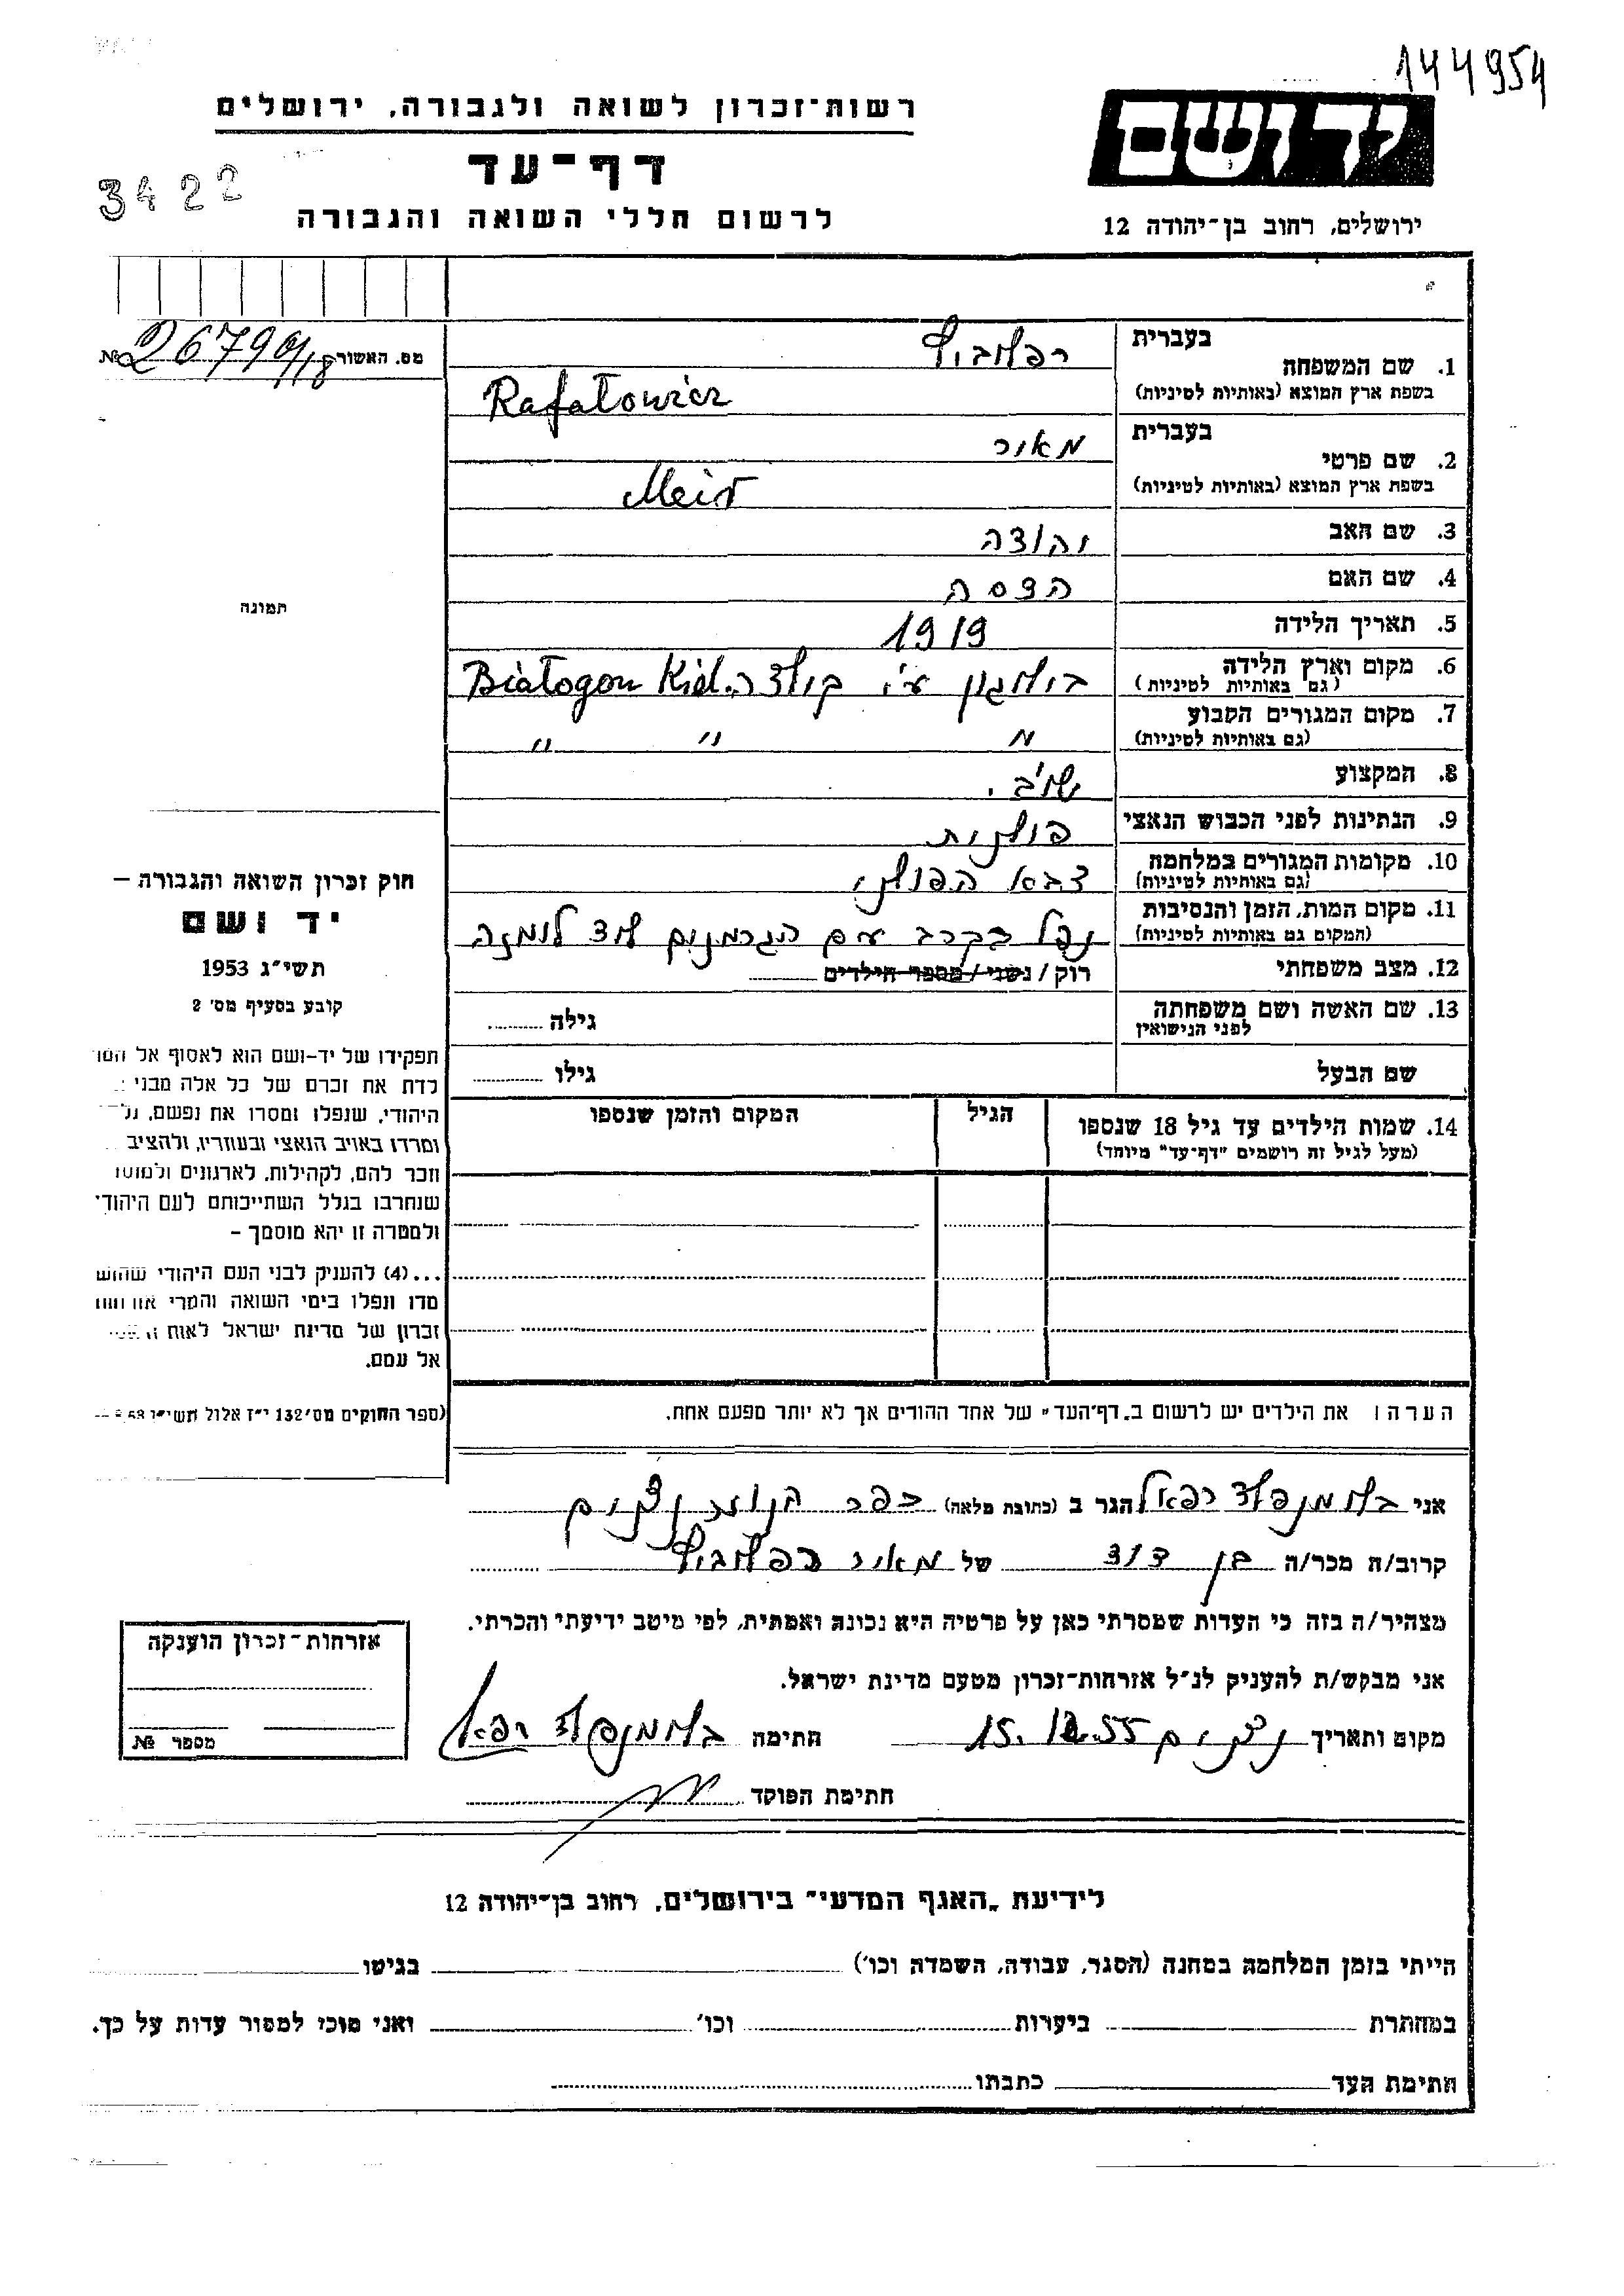 144954
רשות-זכרון לשואה ולגבורה, ירושלים
דף-עד
לרשום חללי השואה והגבורה
3422
יד ושם
ירושלים, רחוב בן-יהודה 12
מס. האשור
№ 26790/18
1. שם המשפחה בעברית
בשפת ארץ המוצא (באותיות לטיניות)
Rafałowicz
2. שם פרטי בעברית מאיר
בשפת ארץ המוצא (באותיות לטיניות) Meir
3. שם האב יהודה
4. שם האם הדסה
5. תאריך הלידה 1919
6. מקום וארץ הלידה
(גם באותיות לטיניות) ע"י קילצה Białogon Kiel.
7. מקום המגורים הקבוע
(גם באותיות לטיניות) " " "
8. המקצוע
9. הנתינות לפני הכבוש הנאצי פולנית
10. מקומות המגורים במלחמה
(גם באותיות לטיניות) צבא הפולני
11. מקום המות, הזמן והנסיבות
(המקום גם באותיות לטיניות) נפל בקרב עם הגרמנים
12. מצב משפחתי רוק / נשוי / מספר הילדים
13. שם האשה ושם משפחתה
לפני הנישואין גילה
שם הבעל גילו
14. שמות הילדים עד גיל 18 שנספו
(מעל לגיל זה רושמים "דף-עד" מיוחד)
הגיל
המקום והזמן שנספו
תמונה
חוק זכרון השואה והגבורה –
יד ושם
תשי"ג 1953
קובע בסעיף מס' 2
תפקידו של יד-ושם הוא לאסוף אל
לדת את זכרם של כל אלה מבני
היהודי, שנפלו ומסרו את נפשם,
ומרדו באויב הנאצי ובעוזריו, ולהציב
זכר להם, לקהילות, לארגונים
שנחרבו בגלל השתייכותם לעם היהודי
ולמטרה זו יהא מוסמך –
...(4) להעניק לבני העם היהודי
מדו ונפלו בימי השואה והמרי
זכרון של מדינת ישראל לאות
אל עמם.
(ספר החוקים מס' 132 י"ז אלול
הערה: את הילדים יש לרשום ב„דף-העד" של אחד ההורים אך לא יותר מפעם אחת.
אני רפאל הגר ב (כתובת מלאה) כפר
קרוב/ה מכר/ה בן דוד של מאיר
מצהיר/ה בזה כי העדות שמסרתי כאן על פרטיה היא נכונה ואמתית, לפי מיטב ידיעתי והכרתי.
אני מבקש/ת להעניק לנ"ל אזרחות-זכרון מטעם מדינת ישראל.
מקום ותאריך 15.12.55 חתימה רפאל
חתימת הפוקד
אזרחות-זכרון הוענקה
מספר №
לידיעת „האגף המדעי" בירושלים, רחוב בן-יהודה 12
הייתי בזמן המלחמה במחנה (הסגר, עבודה, השמדה וכו') בגיטו
במחתרת ביערות וכו' ואני מוכן למסור עדות על כך.
חתימת העד כתבתו